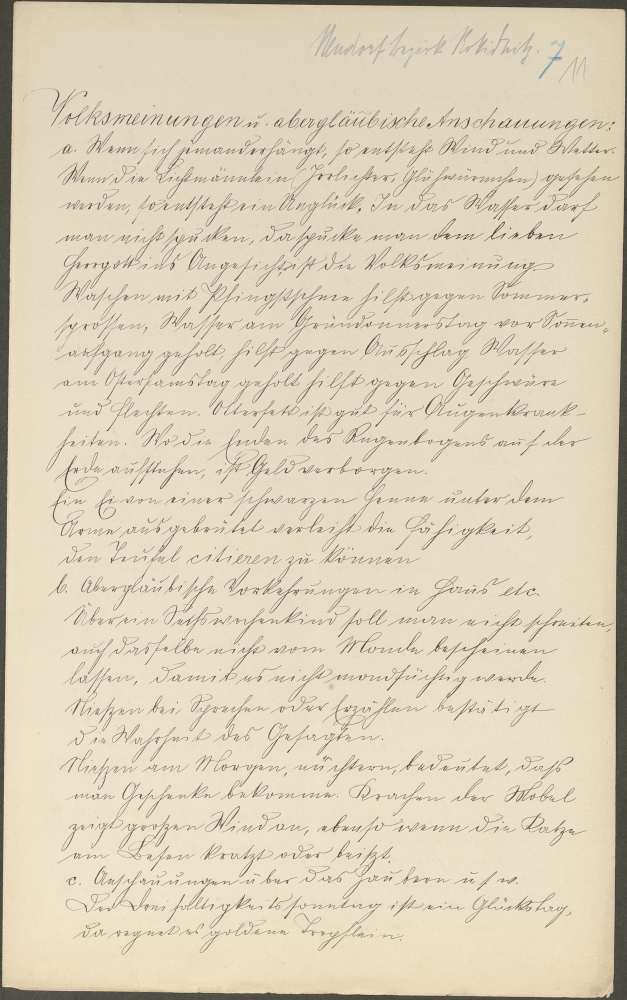 Neudorf bezirk Rokitnitz. 7
11
Volksmeinungen u. abergläubische Anschauungen:
a. Wenn sich jemand erhängt, so entsteht Wind und Wetter.
Wenn die Lichtmännlein (Irrlichter, Glühwürmchen) gesehen
werden, so entsteht ein Unglück. In das Wasser darf
man nicht spucken, da spucke man dem lieben
Herrgott ins Angesicht ist die Volksmeinung
Waschen mit Pfingstschnee hilft gegen Sommer-
sprossen, Wasser am Gründonnerstag vor Sonnen-
aufgang geholt, hilft gegen Ausschlag Wasser
am Ostersamstag geholt hilft gegen Geschwüre
und Flechten. Otterfett ist gut für Augenkrank-
heiten. Wo die Enden des Regenbogens auf der
Erde aufstehen, ist Geld verborgen.
Ein Ei von einer schwarzen Henne unter dem
Arme ausgebrütet verleiht die Fähigkeit,
den Teufel citieren zu können
b. Abergläubische Vorkehrungen in Haus etc.
Über ein Sechswochenkind soll man nicht schreiten,
auch dasselbe nicht vom Monde bescheinen
lassen, damit es nicht mondsüchtig werde.
Nießen bei Sprechen oder Erzählen bestätigt
die Wahrheit des Gesagten.
Nießen am Morgen, nüchtern, bedeutet, dass
man Geschenke bekomme. Krachen der Möbel
zeigt großen Wind an, ebenso wenn die Katze
am Besen kratzt oder beißt.
c. Anschauungen über das Zaubern u s w.
Der Dreifaltigkeitssonntag ist ein Glückstag,
da regnet es goldene